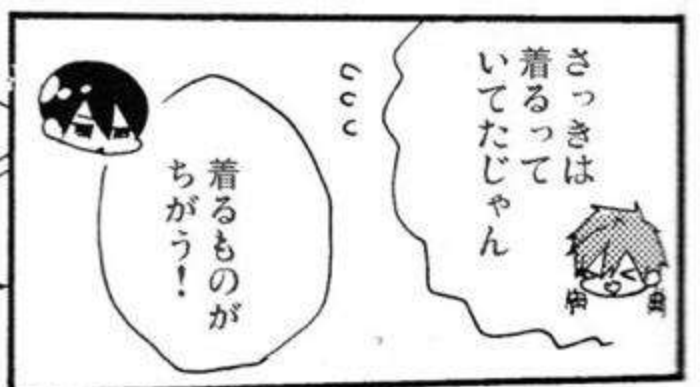 さっきは
着るって
いてたじゃん
着るものが
ちがう!